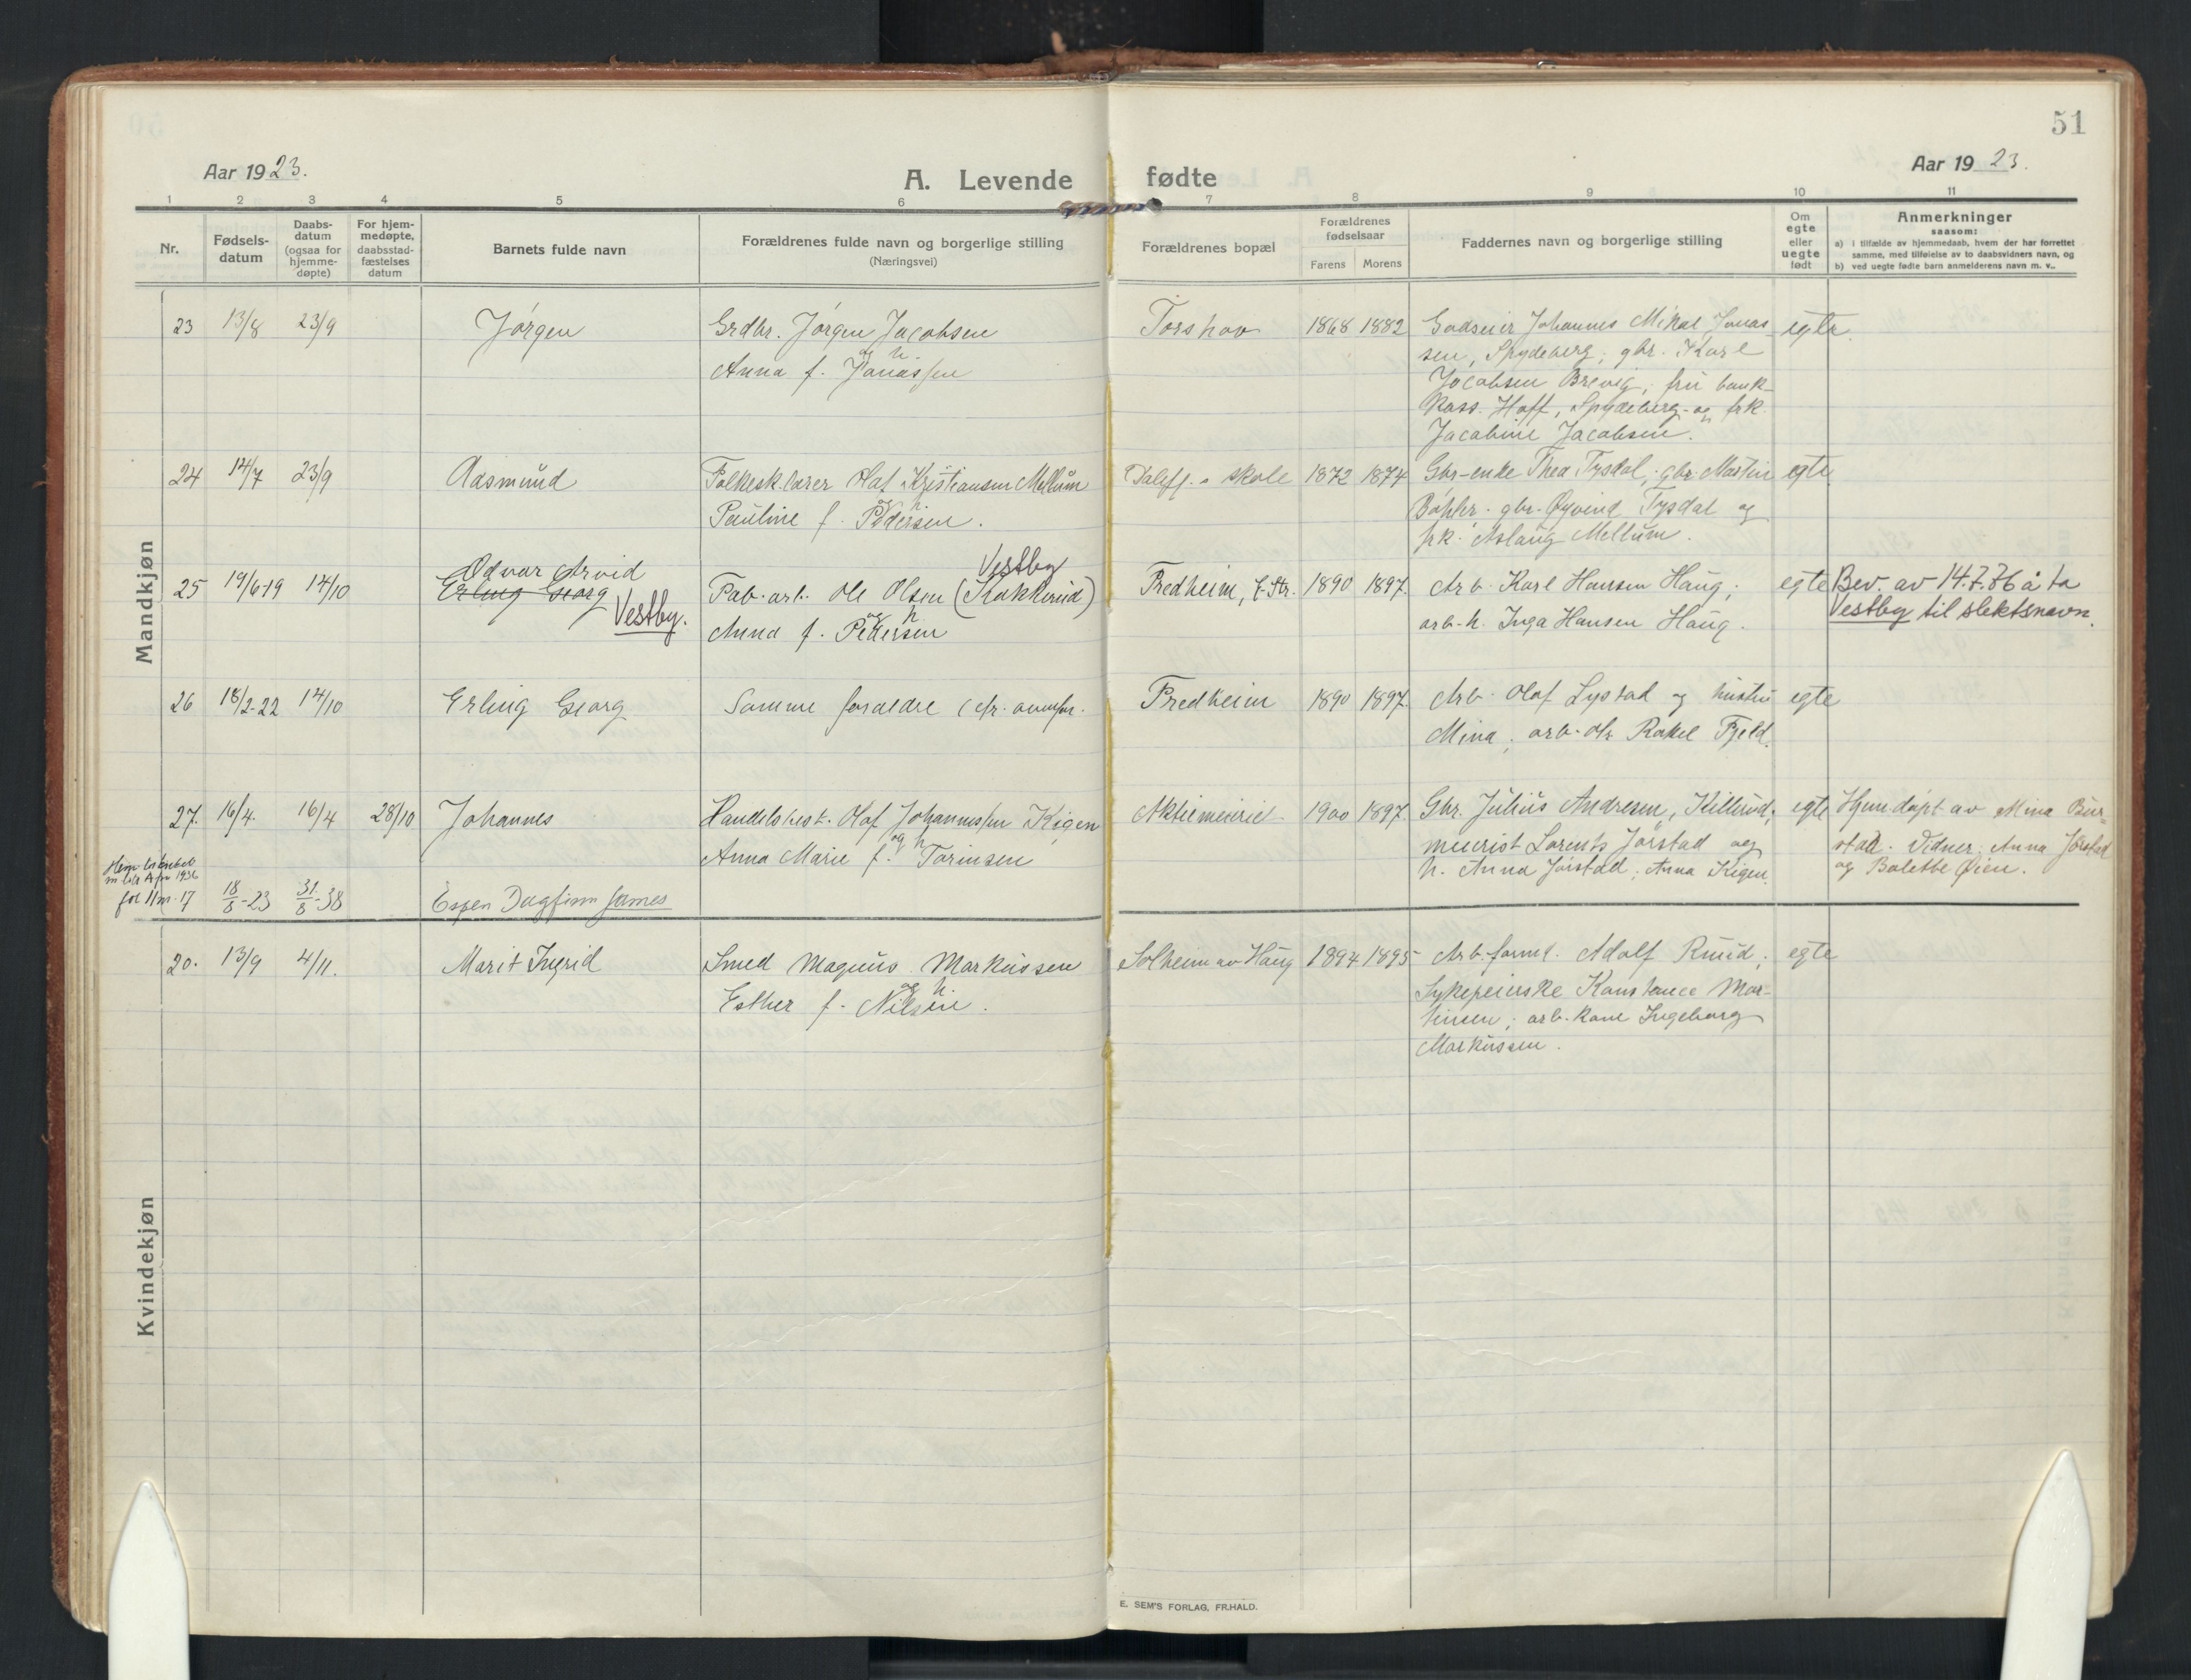 51
Aar 1923.
A. Levende fødte
Aar 1923.
1 2 3 4 5 6 7 8 9 10 11
Nr.
Fødsels-
datum
Daabs-
datum
(ogsaa for
hjemme-
døpte)
For hjem-
medøpte,
daabsstad-
fæstelses
datum
Barnets fulde navn
Forældrenes fulde navn og borgerlige stilling
(Næringsvei)
Forældrenes bopæl
Forældrenes
fødselsaar
Farens Morens
Faddernes navn og borgerlige stilling
Om
egte
eller
uegte
født
Anmerkninger
saasom:
a) i tilfælde av hjemmedaab, hvem der har forrettet
samme, med tilføielse av to daabsvidners navn, og
b) ved uegte fødte barn anmelderens navn m. v..
Mandkjøn
23 13/8 23/9 Jørgen Grdbr. Jørgen Jacobsen Torshov 1868 1882 Godseier Johannes Mikal Jonas- egte.
og h.
Anna f. Jonassen
sen, Spydeberg; gbr. Karl
Jacobsen Brevig; fru bank-
kass. Hoff, Spydeberg og frk.
Jacobine Jacobsen.
24 14/7 23/9 Aasmund Folkesk.lærer Olaf Kristiansen Mellum skole 1872 1874 Gbr-enke Thea Tysdal; gbr. Martin egte
og h.
Pauline f. Pedersen.
gbr. Øyvind Tysdal og
frk. Aslaug Mellum.
Odvar Arvid
Vestby
25 19/6-19 14/10 Erling Georg Vestby. Fab.arb. Ole Olsen (Kokkerud) Fredheim, 1890 1897. Arb. Karl Hansen Haug; egte Bev. av 14.7.36 å ta
Vestby til slektsnavn.
og h
Anna f. Pedersen
arb-h. Inga Hansen Haug.
26 18/2-22 14/10 Erling Georg Samme foraeldre (cfr. ovenfor. Fredheim 1890 1897. Arb. Olaf Lystad og hustru egte
Mina; arb. Rakel Fjeld.
27. 16/4. 16/4 28/10 Johannes Handelsbest. Olaf Johannessen Kigen Aktiemeieriet 1900 1897. Gbr. Julius Andresen, Killerud; egte Hjemdøpt av Mina Bur-
og h
Anna Marie f. Torinsen
meierist Lorents Jørstad og
stad. Vidner: Anna Jørstad
h. Anna Jørstad; Anna Kigen.
og Bolette Øien.
fol 11 nr. 17 18/8-23 31/8-38 Espen Dagfinn James
Kvindekjøn
20. 13/9 4/11. Marit Ingrid Smed Magnus Markussen Solheim av Haug 1894 1895 Arb.form. Adolf Ruud; egte
og h.
Esther f. Nilsen.
Sykepleierske Konstance Mar-
tinsen; arb.kone Ingeborg
Markussen.
E. SEM'S FORLAG, FR.HALD.